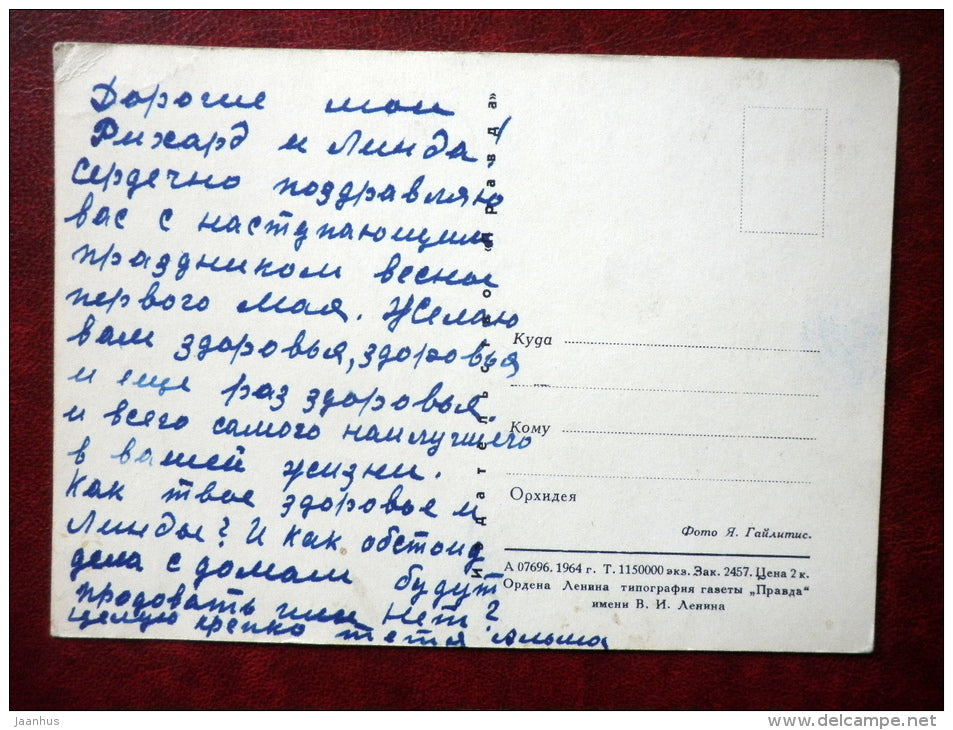 Дорогие мои
Рихард и Линда!
Сердечно поздравляю
вас с наступающим
праздником весны
первого мая. Желаю
вам здоровья, здоровья
и еще раз здоровья.
и всего самого наилучшего
в вашей жизни.
Как твое здоровье и
Линды? И как обстоид
дела с домам будут
продовать или нет?
целую крепко тетя Альма
Издательство «Правда»
Куда
Кому
Орхидея
Фото Я. Гайлитис.
А 07696. 1964 г. Т. 1150000 экз. Зак. 2457. Цена 2 к.
Ордена Ленина типография газеты „Правда"
имени В. И. Ленина
jaanhus
www.delcampe.net